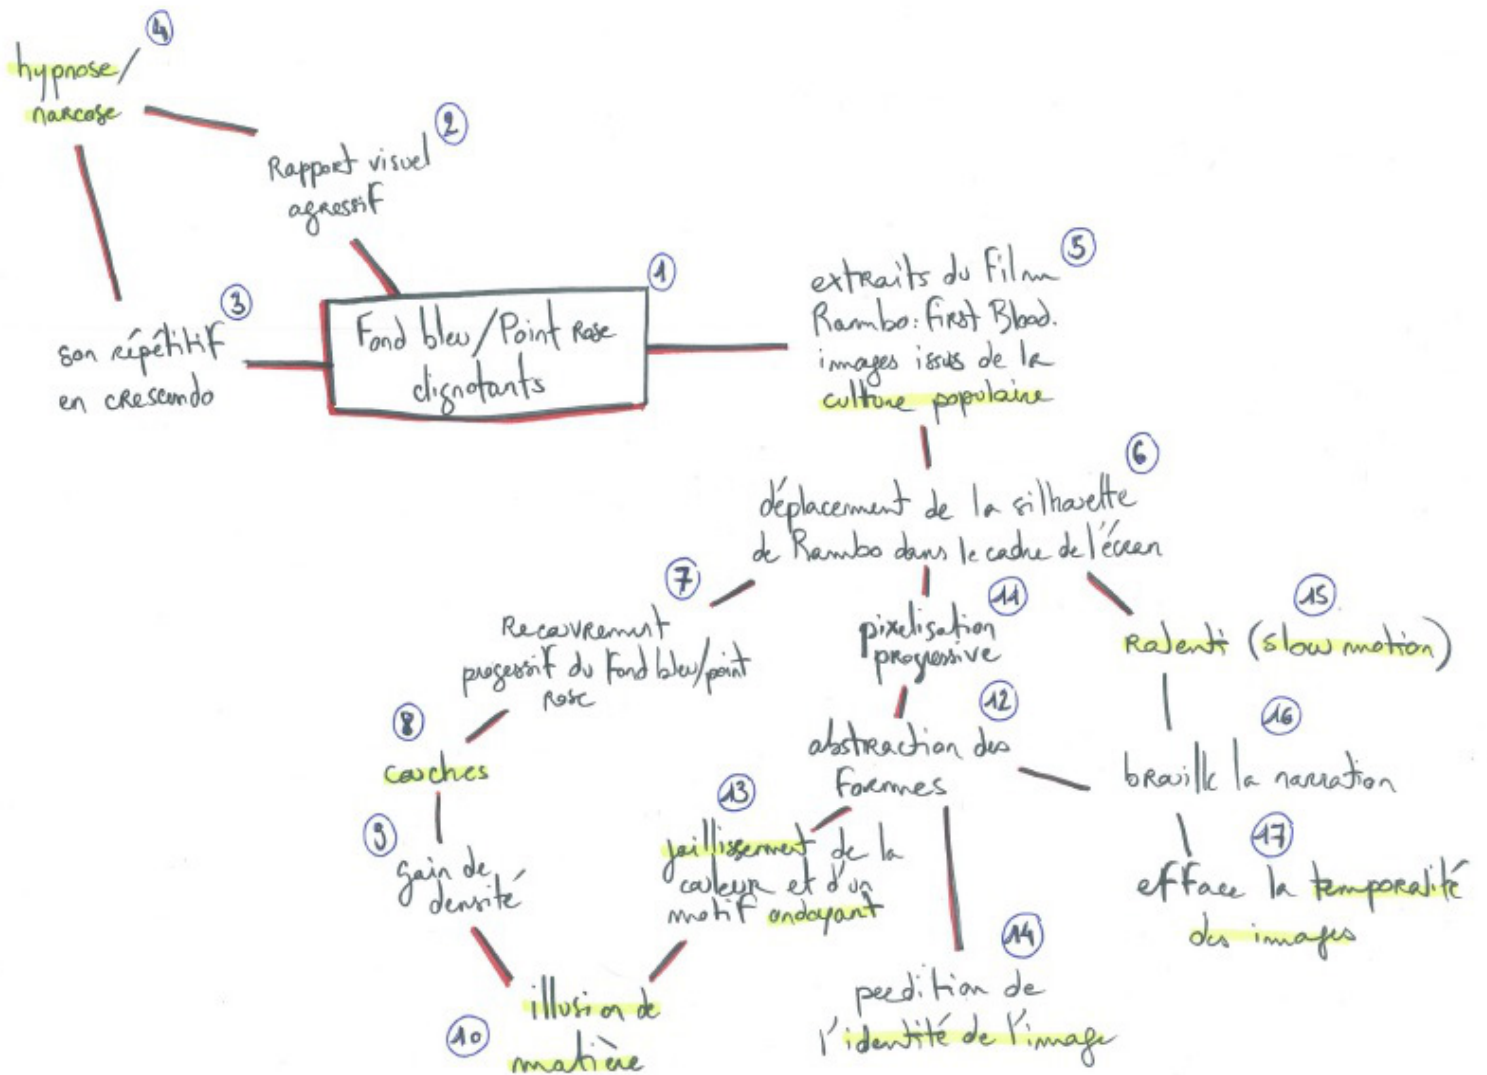 4
hypnose/
narcose
2
Rapport visuel
agressif
3
son répétitif
en crescendo
1
Fond bleu/Point Rose
clignotants
5
extraits du film
Rambo: first Blood.
images issus de la
culture populaire
6
déplacement de la silhouette
de Rambo dans le cadre de l'écran
7
Recouvrement
progessif du fond bleu/point
rose
8
couches
9
gain de
densité
10
illusion de
matière
11
pixelisation
progressive
12
abstraction des
formes
13
jaillissement de la
couleur et d'un
motif ondoyant
14
perdition de
l'identité de l'image
15
Ralenti (slow motion)
16
brouille la narration
17
efface la temporalité
des images